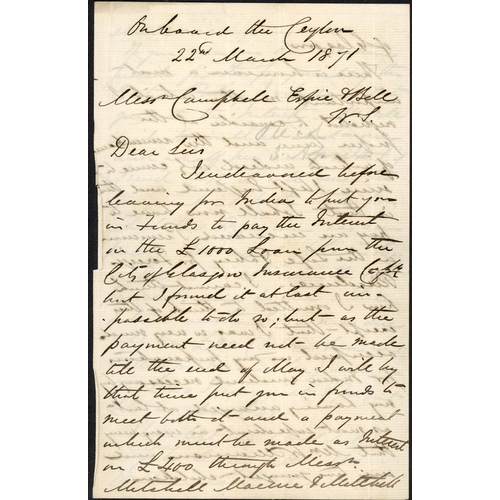 On board the Ceylon
22nd March 1871
Messrs Campbell Espie & Bell
W. S.
Dear Sirs
I endeavoured before
leaving for India to put you
in Funds to pay the Interest
on the £1000 Loan from the
City of Glasgow Insurance
but I found it at last im-
possible to do so; but as the
payment need not be made
till the end of May I will by
that time put you in funds to
meet both it and a payment
which must be made as Interest
on £400 through Messrs
Mitchell & Mitchell